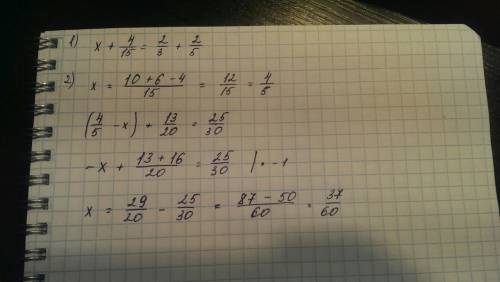 1) x + 4/15 = 2/3 + 2/5
2) x = (10+6-4)/15 = 12/15 = 4/5
(4/5 - x) + 13/20 = 25/30
-x + (13+16)/20 = 25/30 | · -1
x = 29/20 - 25/30 = (87-50)/60 = 37/60